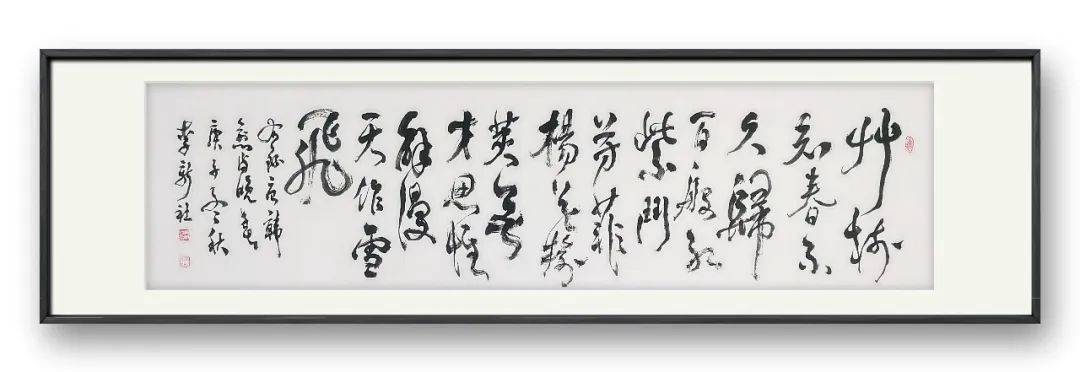 艸树
知春不
久歸
百般红
紫鬥
芳菲
楊花榆
荚無
才思惟
解漫
天作雪
飛
右録唐韓
愈诗晚春
庚子 秋
李新社